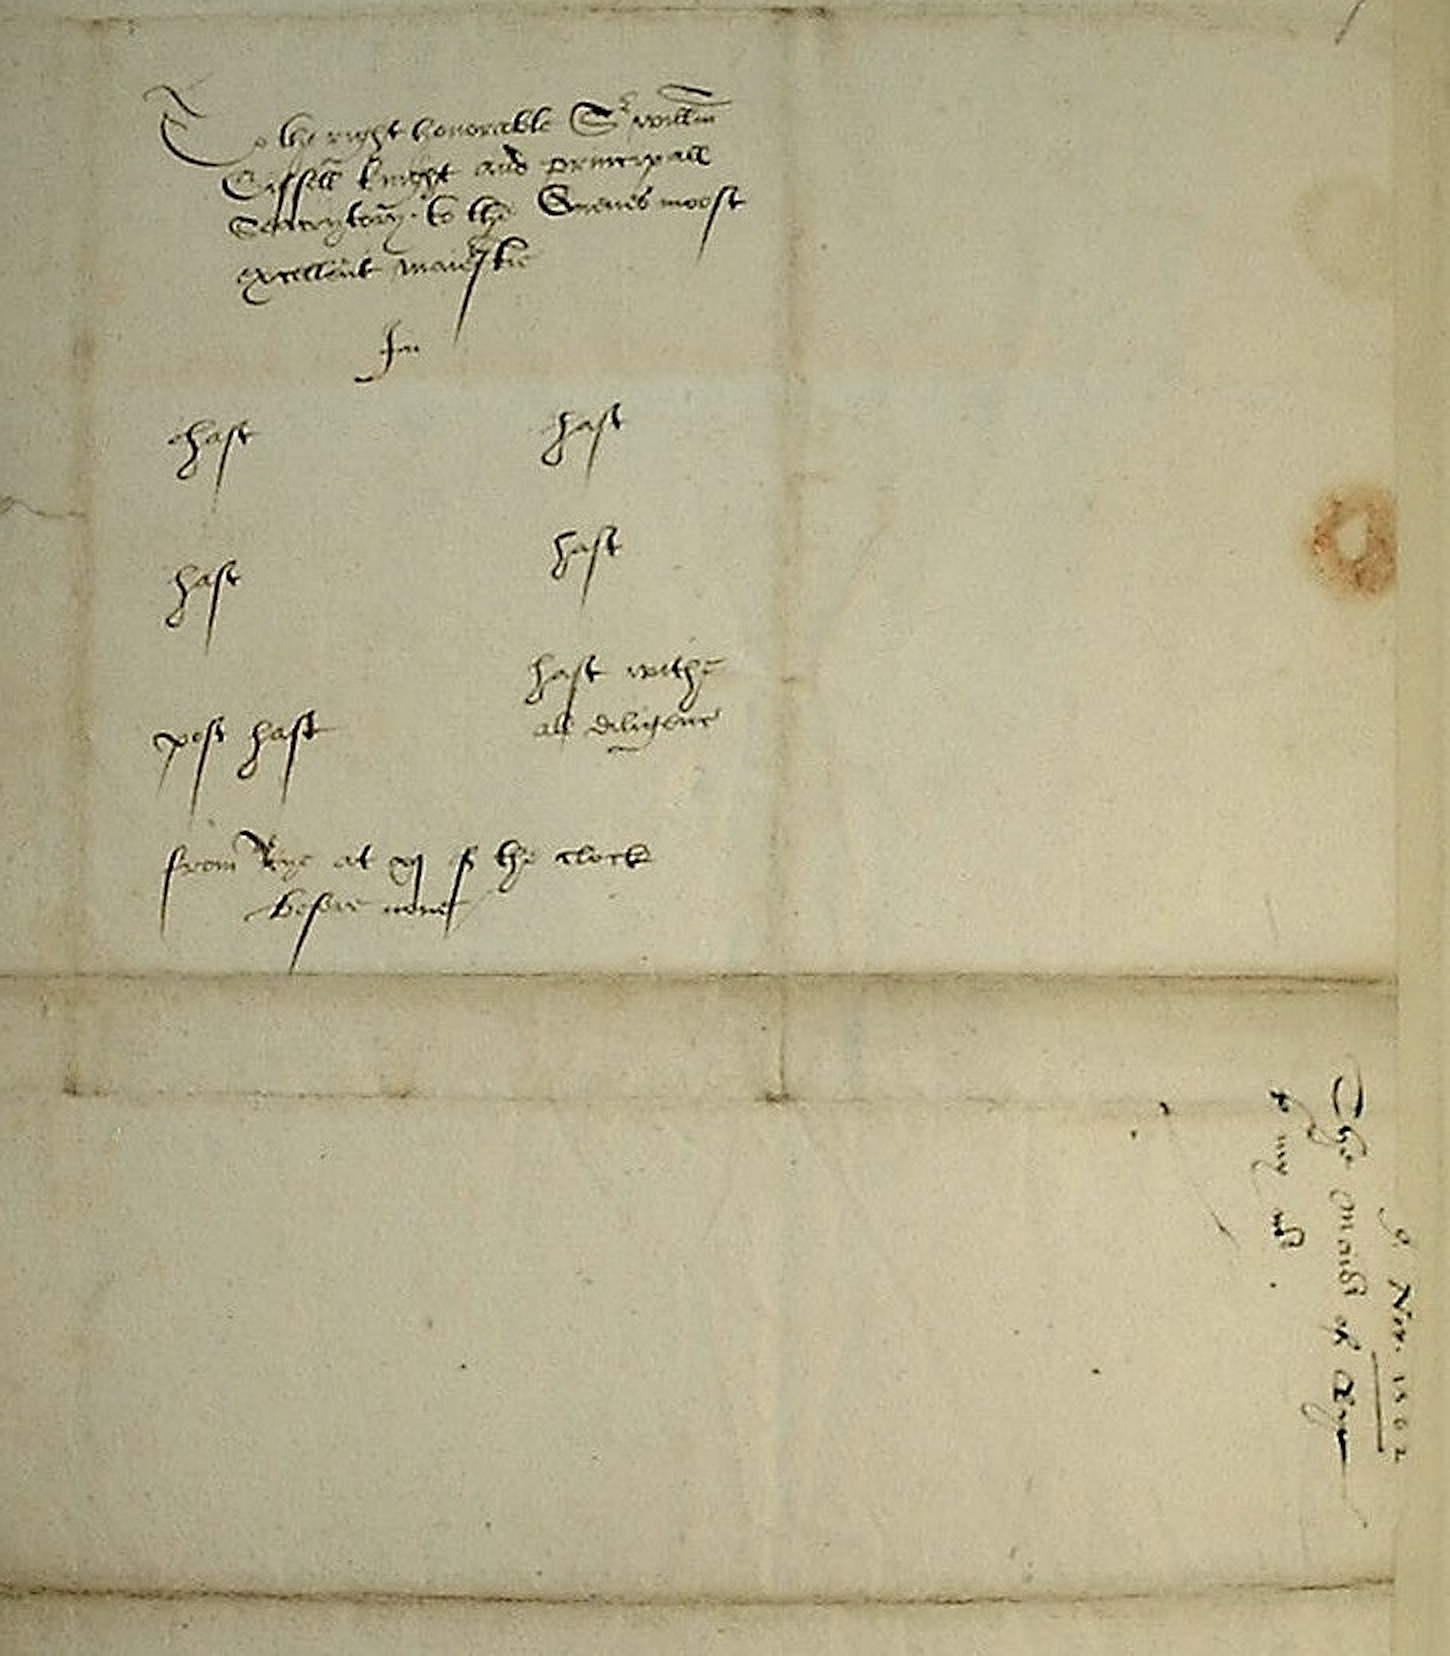 To the right honorable Sr willm
Cissill knight and principall
Secrytory to the Quenes moost
excellent maiestie
In
hast hast
hast hast
post hast hast withe
all diligence
from Rye at xj of the clock
before none
9. Nov. 1562
The Maior of Rye
to my Mr